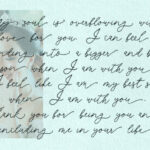 My soul is overflowing wi
love for you. I can feel
nding into a bigger and b
son when I am with you
I feel like I am my best s
when I am with you.
ank you for being you an
including me in your life